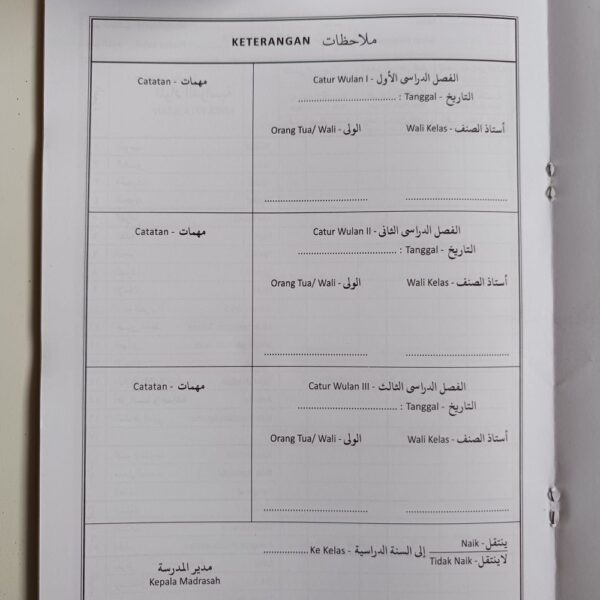 KETERANGAN ملاحظات
Catatan - مهمات
Catur Wulan I - الفصل الدراسى الأول
التاريخ - Tanggal : ....................................
Orang Tua/ Wali - الولى
Wali Kelas - أستاذ الصنف
Catatan - مهمات
Catur Wulan II - الفصل الدراسى الثانى
التاريخ - Tanggal : ....................................
Orang Tua/ Wali - الولى
Wali Kelas - أستاذ الصنف
Catatan - مهمات
Catur Wulan III - الفصل الدراسى الثالث
التاريخ - Tanggal : ....................................
Orang Tua/ Wali - الولى
Wali Kelas - أستاذ الصنف
ينتقل - Naik
لاينتقل - Tidak Naik
إلى السنة الدراسية - Ke Kelas ................
مدير المدرسة
Kepala Madrasah